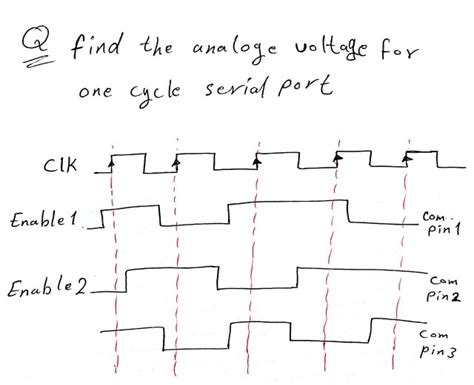 Q find the analoge voltage for
one cycle serial port
Clk
Enable1
Com.
pin1
Enable2
Com
Pin2
Com
pin3